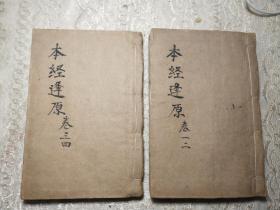 本经逢原
卷一二
本经逢原
卷三四